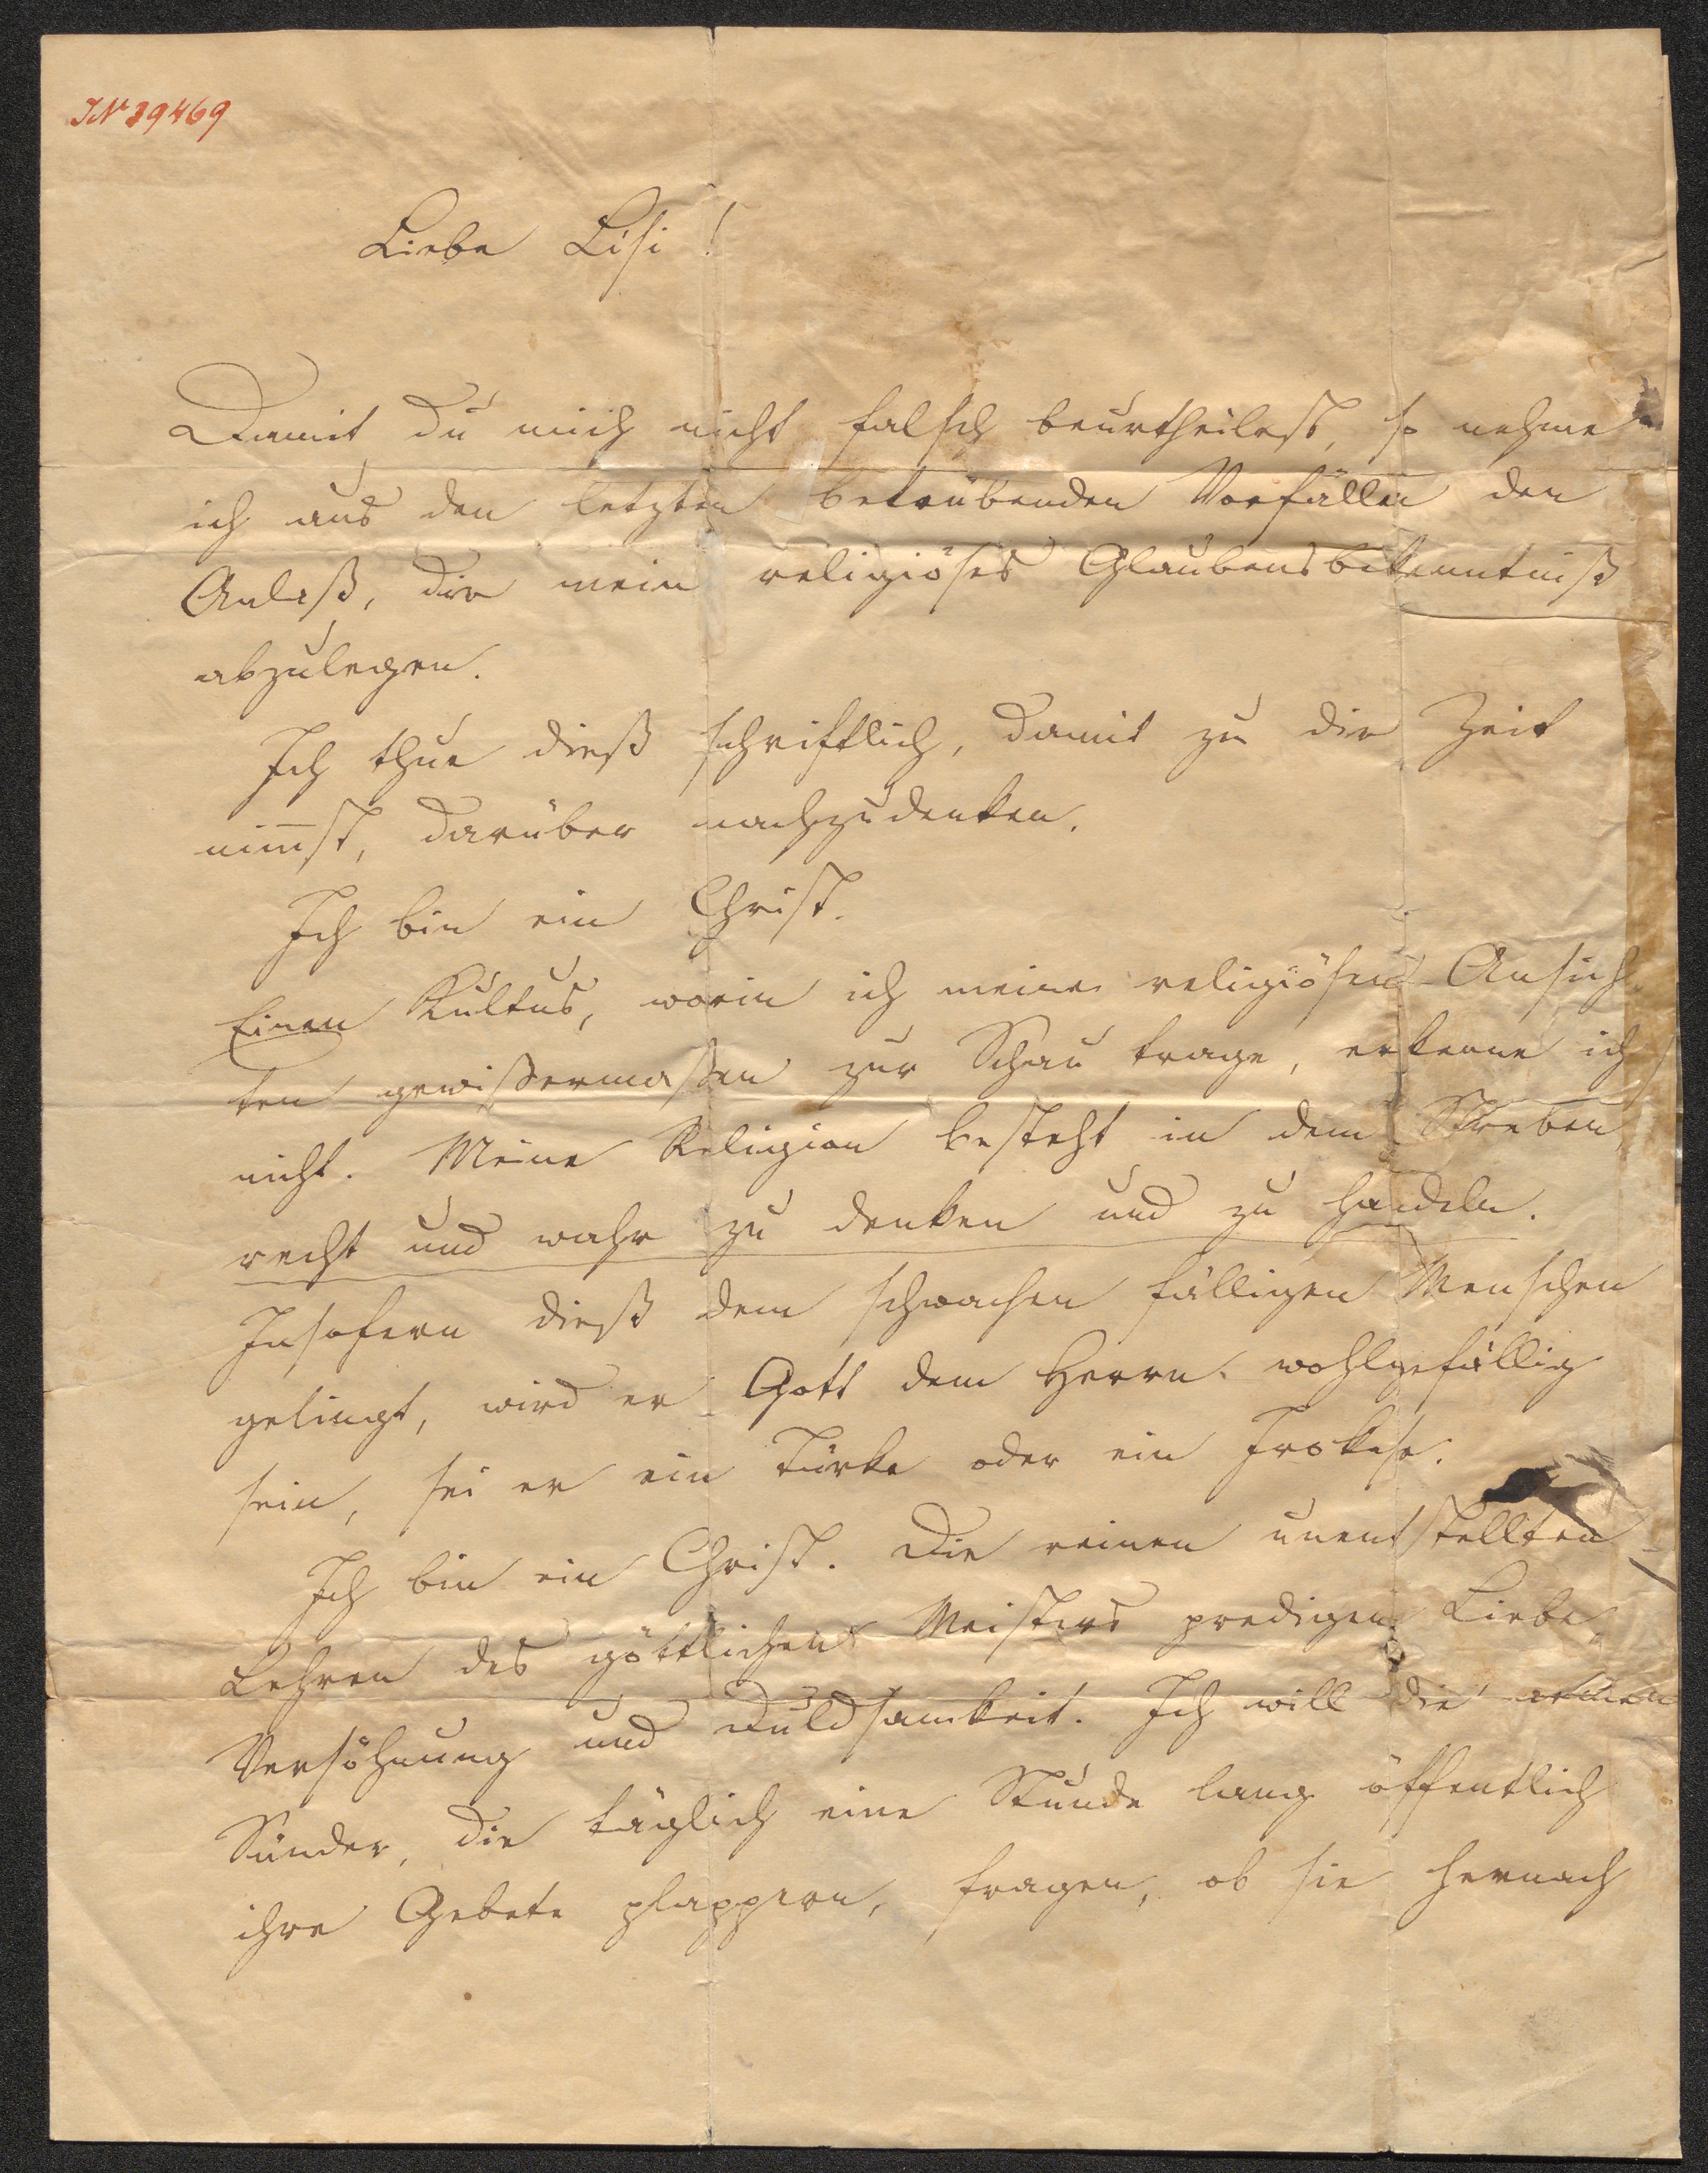 IN 39469
Liebe Lisi!
Damit Du mich nicht falsch beurtheilest, so nehme
ich aus den letzten betrübenden Vorfällen den
Anlaß, dir mein religiöses Glaubensbekenntniß
abzulegen.
Ich thue dieß schriftlich, damit zu dir Zeit
nim̅st, darüber nachzudenken.
Ich bin ein Christ.
Einen Kultus, worin ich meine religiösen Ansich-
ten gewißermaßen zur Schau trage, erkenne ich
nicht. Meine Religion besteht in dem Streben
recht und wahr zu denken und zu handeln.
Insofern dieß dem schwachen fälligen Menschen
gelingt, wird er Gott dem Herrn wohlgefällig
sein, sei er ein Türke oder ein Irokese.
Ich bin ein Christ. Die reinen unentstellten
Lehren des göttlichen Meisters predigen Liebe,
Versöhnung und Duldsamkeit. Ich will die armen
Sünder, die täglich eine Stunde lang öffentlich
ihre Gebete plappern, fragen, ob sie hernach